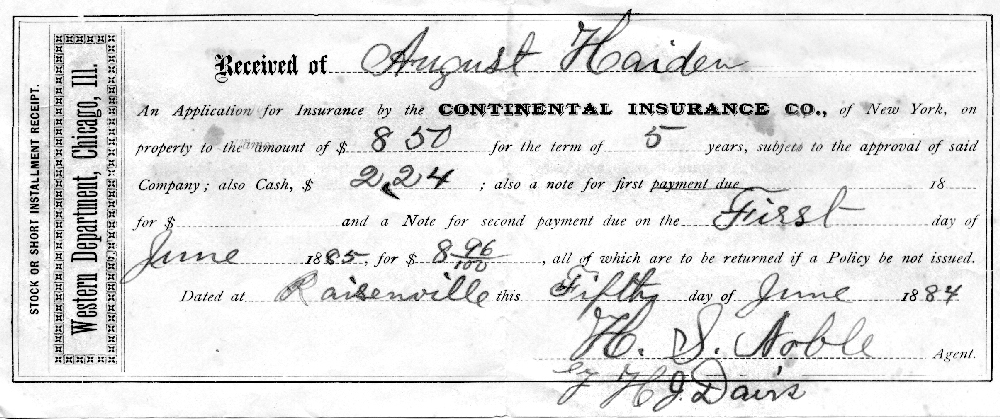 STOCK OR SHORT INSTALLMENT RECEIPT.
Western Department, Chicago, Ill.
Received of August Haiden
An Application for Insurance by the CONTINENTAL INSURANCE CO., of New York, on
property to the amount of $ 850 for the term of 5 years, subject to the approval of said
Company; also Cash, $ 2,24 ; also a note for first payment due 18
for $ and a Note for second payment due on the First day of
June 1885, for $ 8 96/100, all of which are to be returned if a Policy be not issued.
Dated at Raisenville this Fifth day of June 1884
H. S. Noble Agent.
by H J Davis